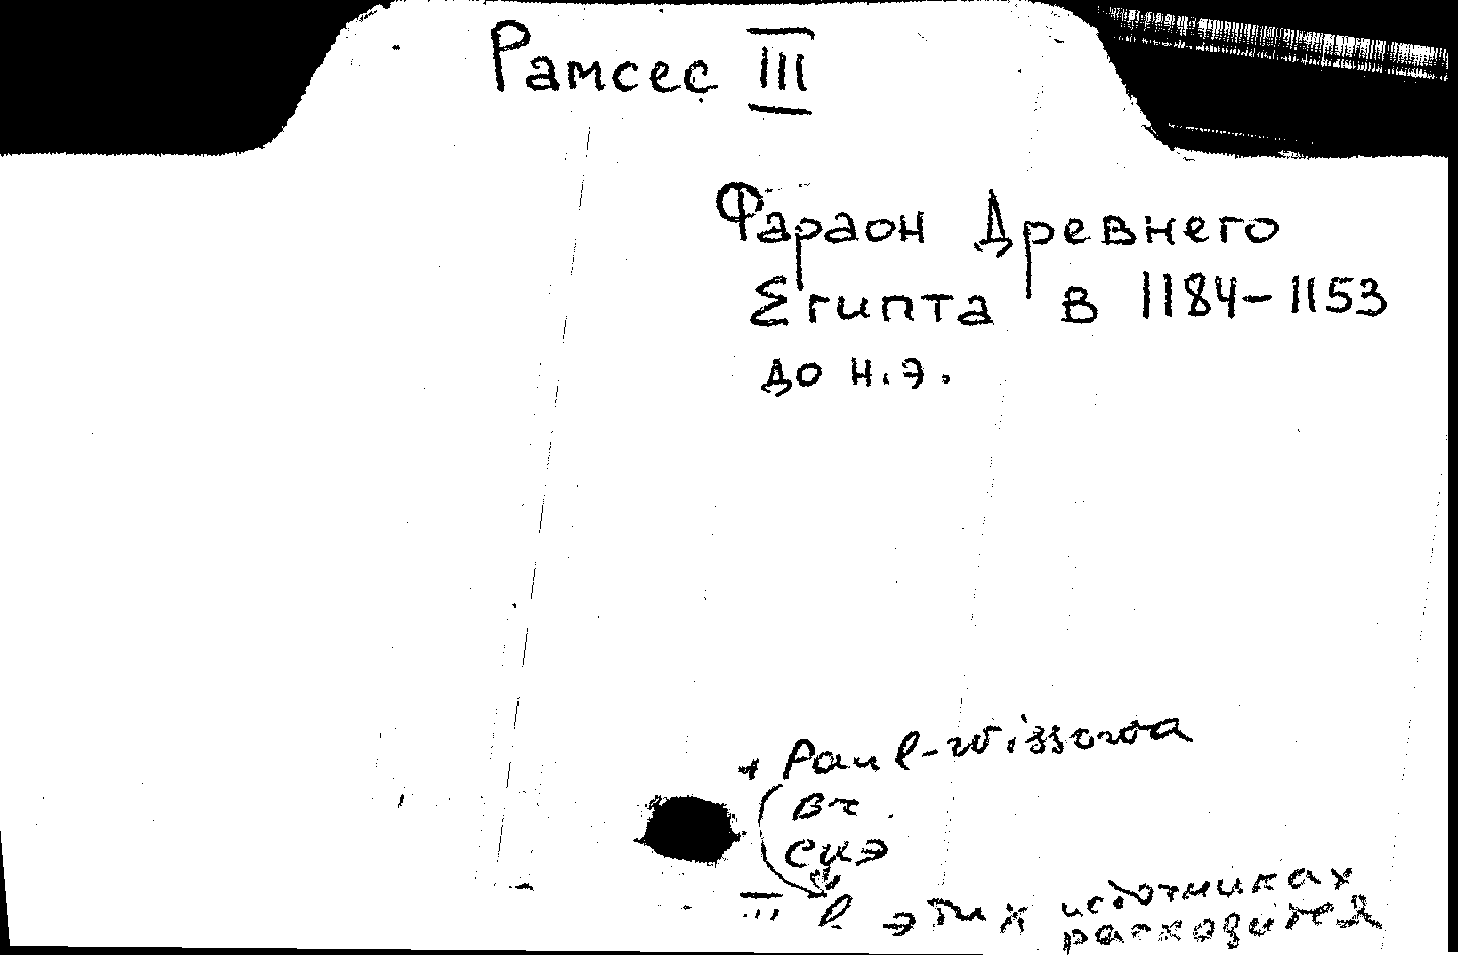 Рамсес III
Фараон Древнего
Египта в 1184-1153
до н.э.
+ Paul-Wissowa
Вч
СИЭ
III в этих источниках
расходится